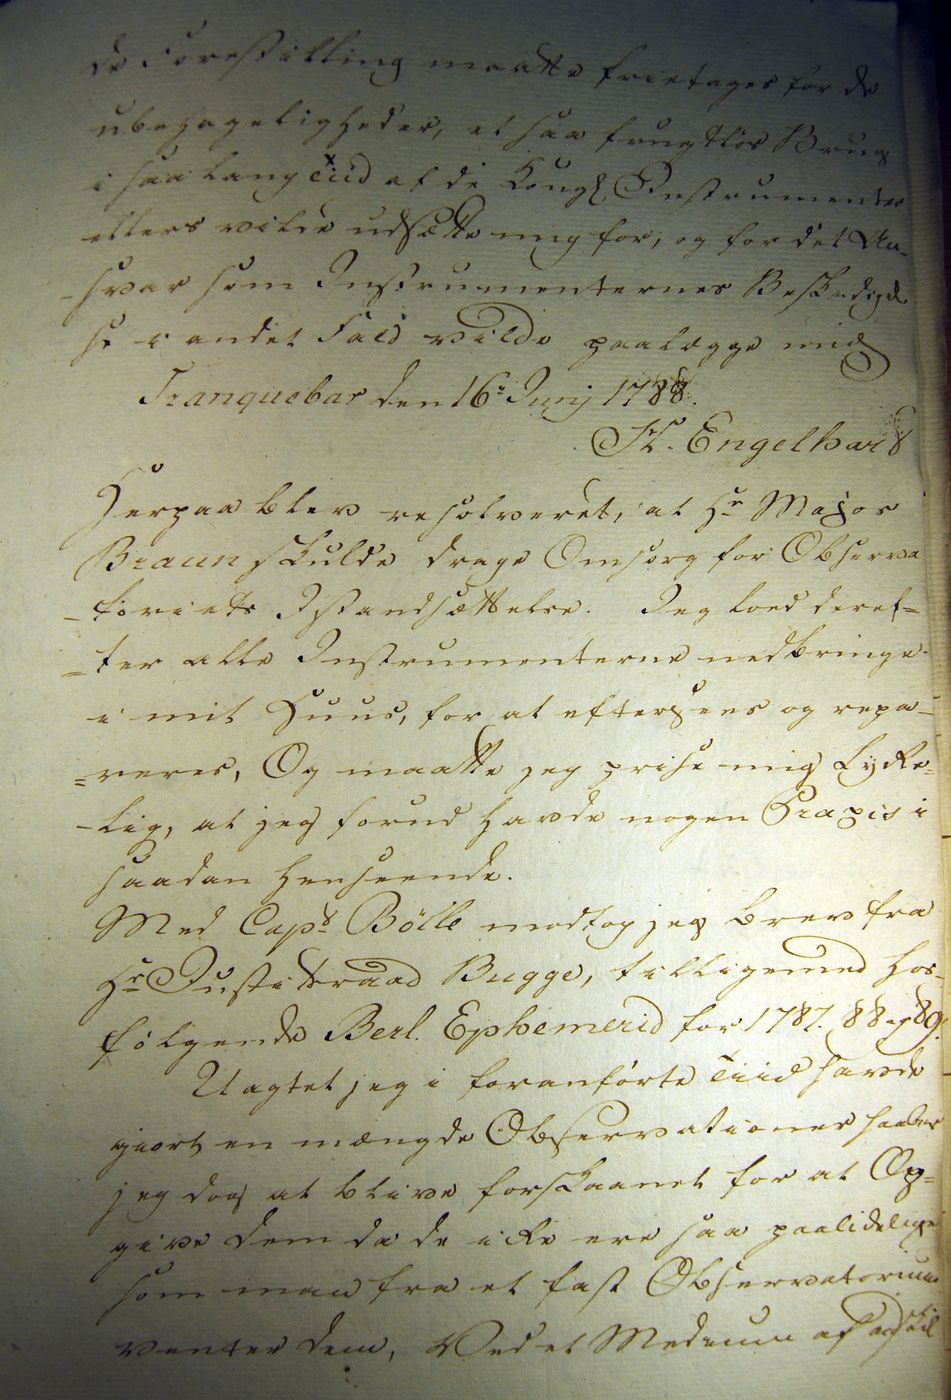 de Forestilling maatte frietages for de
ubehageligheder, et saa frugtlös Brug
i saa lang Tiid af de Kongl. Instrumenter
ellers vilde udsætte mig for, og for det An-
-svar som Instrumenternes Beskadigel
se i andet Fald vilde paalægge mig
Tranquebar den 16de Junij 1788.
H. Engelhart
Herpaa blev resolveret, at Hr Major
Braun skulde drage Omsorg for Observa
-toriets Istandsættelse. Jeg loed deref-
-ter alle Instrumenterne nedbringe
i mit Huus, for at eftersees og repa-
=reres, Og maatte jeg prise mig Lykke-
-lig, at jeg forud havde nogen Praxis i
saadan henseende.
Med Capt Bölle modtog jeg brev fra
Hr Justitsraad Bugge, tilligemed hos-
følgende Berl. Ephemerid for 1787. 88 og 89.
Uagtet jeg i foranførte Tiid havde
giort en mængde Observationer haaber
jeg dog at blive forskaanet for at Op-
give dem da de ikke ere saa paalidelige
som man fra et fast Observatorium
venter dem, Ved et Medium af adskil